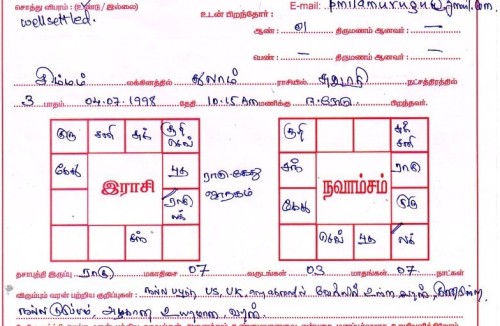 சொத்து விபரம் : (உண்டு / இல்லை)
wellsettled.
உடன் பிறந்தோர் :
E-mail: pmilamurugu@gmail.com
ஆண் : 01 திருமணம் ஆனவர் : —
பெண் : — திருமணம் ஆனவர் : —
சிம்மம் லக்கினத்தில் துலாம் ராசியில் சுவாதி நட்சத்திரத்தில்
3 பாதம் 04.07.1998 தேதி 10.15 Am மணிக்கு ஈரோடு பிறந்தவர்.
குரு சனி சுக் சூரி செவ்
கேது புத
ராகு
லக்
சந்
இராசி
ராகு கேது
ஜாதகம்
சூரி சுக் சனி
சந் ராகு
கேது குரு
செவ் புத லக்
நவாம்சம்
தசாபுத்தி இருப்பு : ராகு மகாதிசை 07 வருடங்கள் 03 மாதங்கள் 07 நாட்கள்
விரும்பும் வரன் பற்றிய குறிப்புகள் : நல்ல படிப்பு US, UK, வரன்
நல்ல குடும்பம், அழகான உயரமான வரன்.